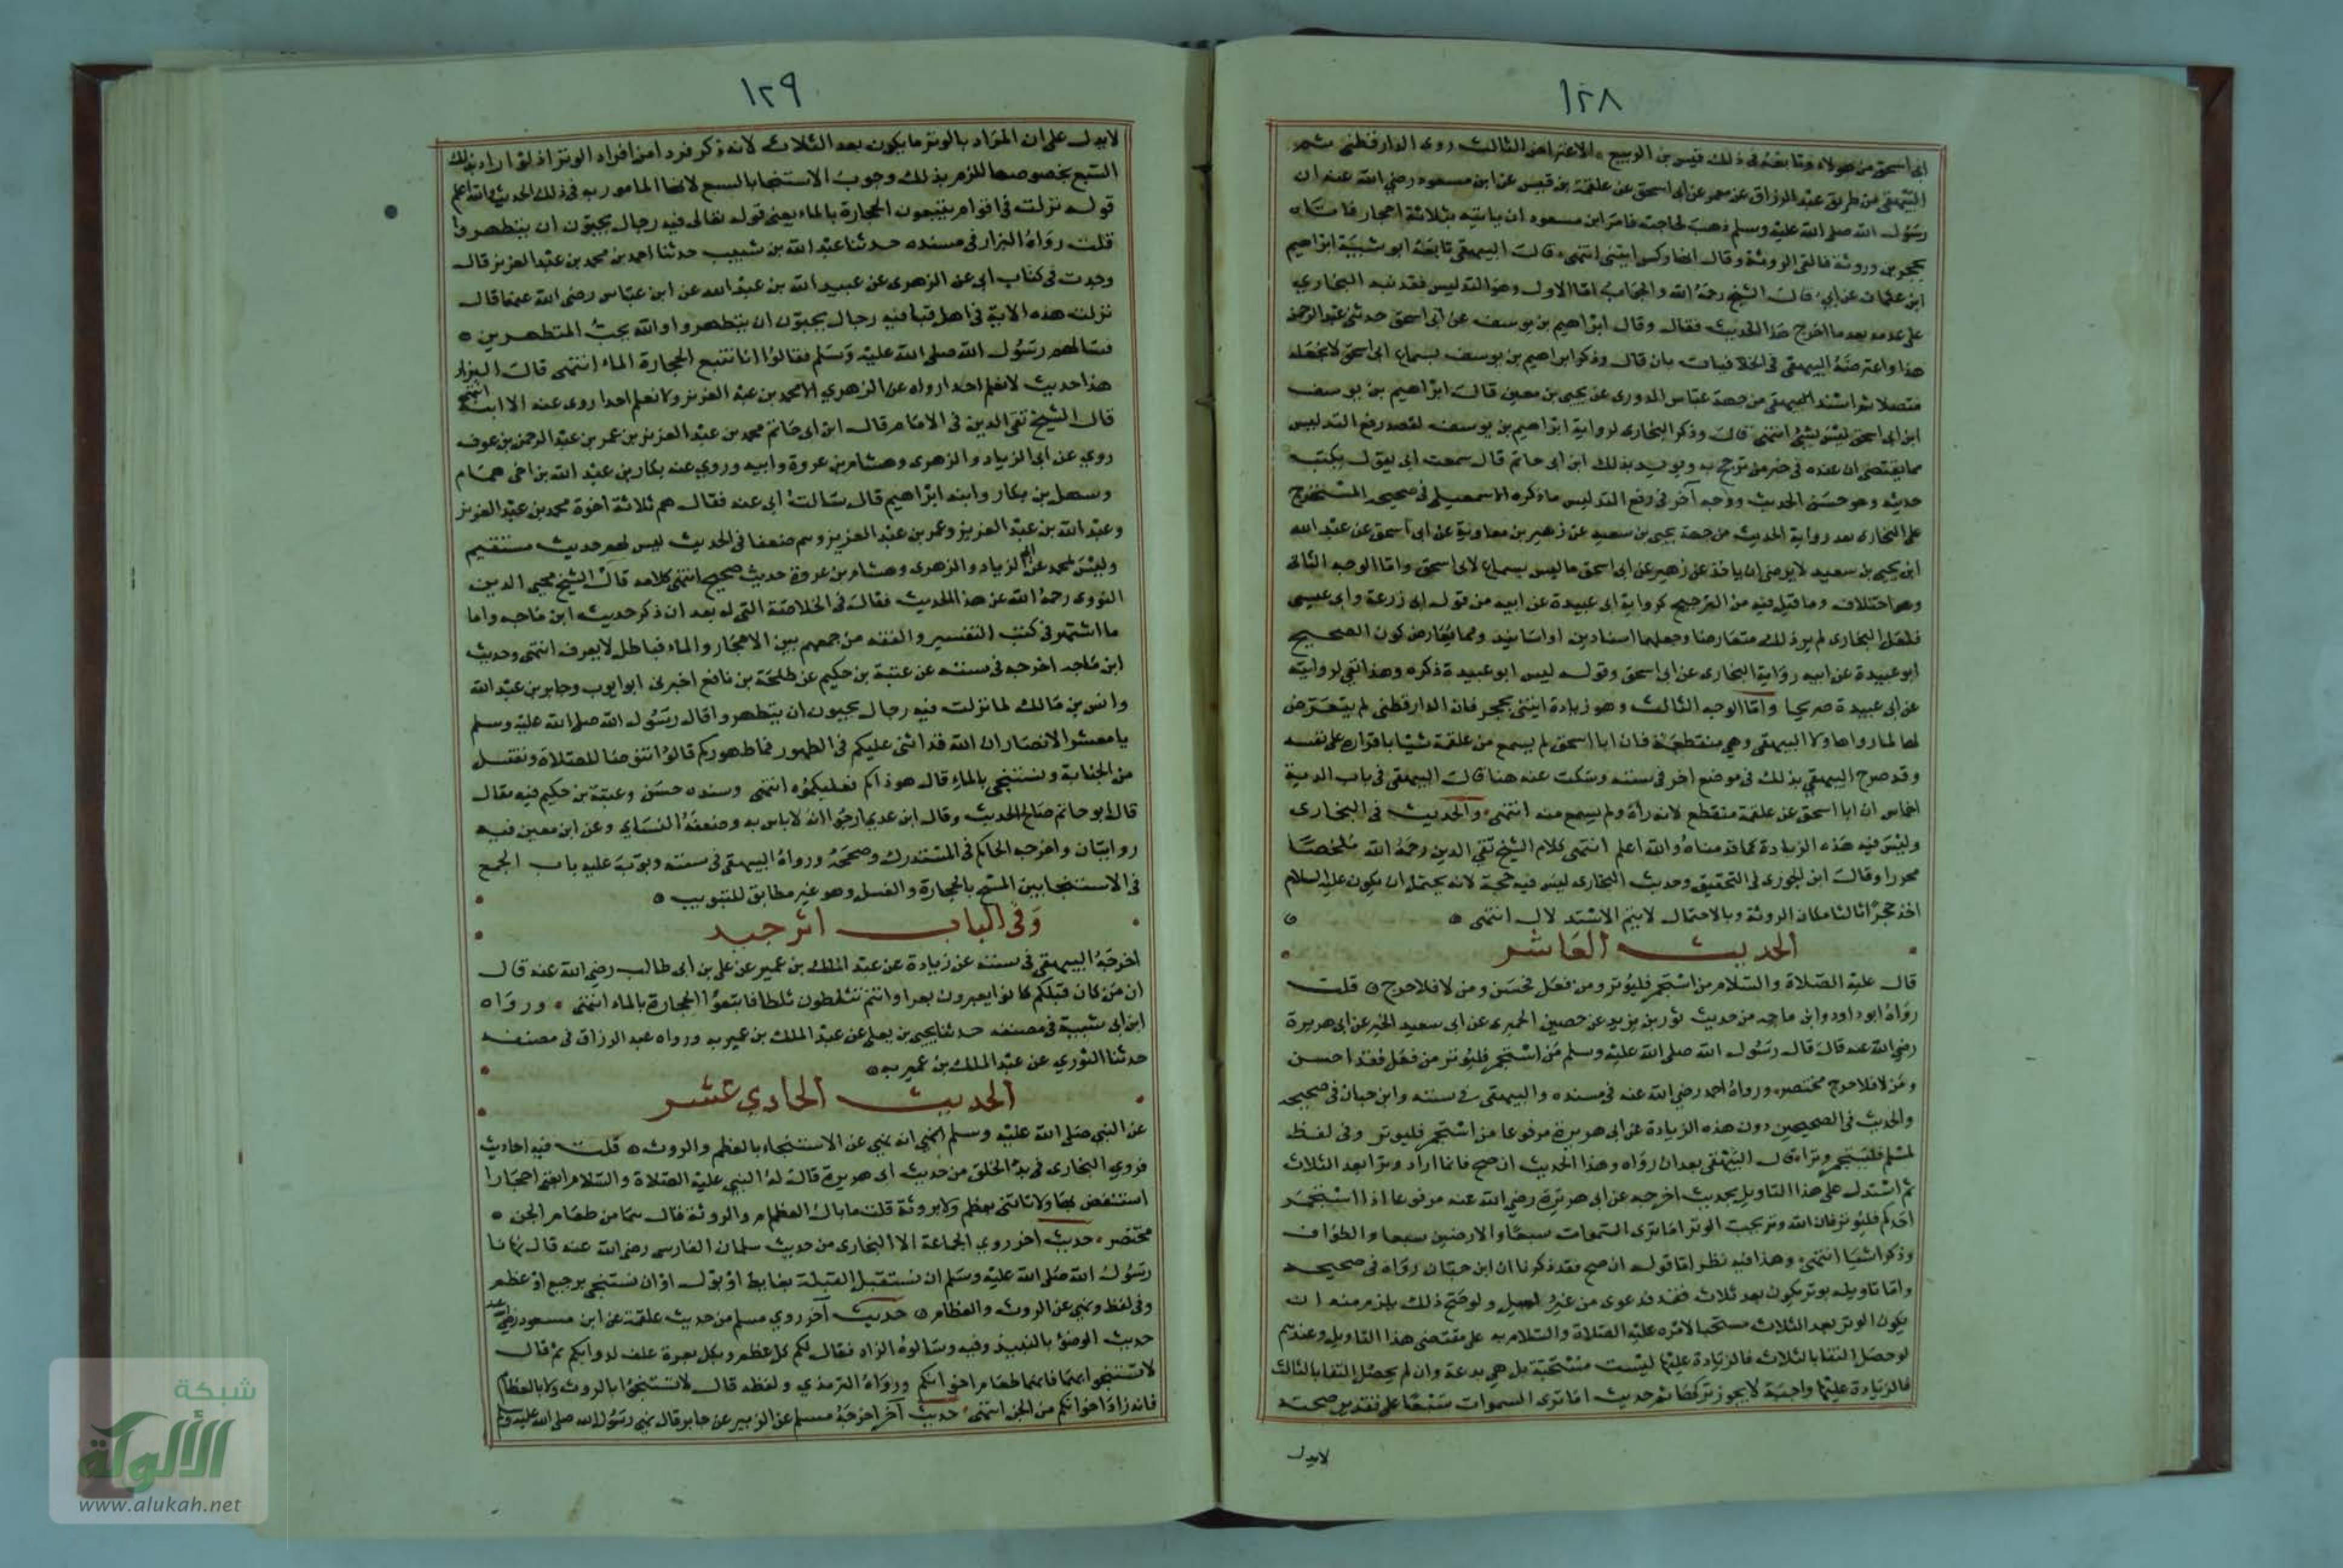 ١٢٨
ابى اسحق من هولاء وتابعه فى ذلك قيس بن الربيع الاعتراض الثالث روى الدارقطنى ثم
البيهقى من طريق عبد الرزاق عن معمر عن ابى اسحق عن علقمة بن قيس عن ابن مسعود رضى الله عنه ان
رسول الله صلى الله عليه وسلم ذهب لحاجته فامر ابن مسعود ان ياتيه بثلاثة احجار فاتاه
بحجرين وروثة فالقى الروثة وقال انها ركس ايتنى انتهى قال البيهقى تابعه ابو شيبة ابراهيم
ابن عثمان عن ابى قال الشيخ رحمه الله والجواب اما الاول وهو التدليس فقد نبه البخارى
على عدمه بعد ما اخرج هذا الحديث فقال وقال ابراهيم بن يوسف عن ابى اسحق حدثنى عبد الرحمن
هذا واعترضه البيهقى فى الخلافيات بان قال وذكر ابراهيم بن يوسف لسماع ابى اسحق لا يجعله
متصلا ثم اسند البيهقى من جهة عباس الدورى عن يحيى بن معين قال ابراهيم بن يوسف
ابن ابى اسحق ليس بشئ انتهى قال وذكر البخارى لرواية ابراهيم بن يوسف لقصد رفع التدليس
مما يقتضى ان عنده فى حيز من ترجح به ويويد بذلك ابن ابى حاتم قال سمعت ابى يقول يكتب
حديثه وهو حسن الحديث ووجه آخر فى رفع التدليس ما ذكره الاسمعيلى فى صحيحه المستخرج
على البخارى بعد رواية الحديث من جهة يحيى بن سعيد عن زهير بن معاوية عن ابى اسحق عن عبد الله
ابن يحيى بن سعيد لا يرضى ان ياخذ عن زهير عن ابى اسحق ما ليس بسماع لابى اسحق واما الوجه الثانى
وهو اختلاف وما قيل فيه من الترجيح كرواية ابى عبيدة عن ابيه من قول ابى زرعة وابى عيسى
فلعل البخارى لم ير ذلك متعارضا وجعلهما اسنادين او اسانيد ومما يعارض كون الصحيح
ابو عبيدة عن ابيه رواية البخارى عن ابى اسحق وقوله ليس ابو عبيدة ذكره وهذا نفى لروايته
عن ابى عبيدة صريحا واما الوجه الثالث وهو زيادة ايتنى بحجر فان الدارقطنى لم يتعرض
لها لما رواها ولا البيهقى وهى منقطعة فان ابا اسحق لم يسمع من علقمة شيئا باقراره على نفسه
وقد صرح البيهقى بذلك فى موضع اخر فى سننه وسكت عنه هنا قال البيهقى فى باب الدية
اخماس ان ابا اسحق عن علقمة منقطع لانه رآه ولم يسمع منه انتهى والحديث فى البخارى
وليس فيه هذه الزيادة كما قدمناه والله اعلم انتهى كلام الشيخ تقى الدين رحمه الله ملخصا
محررا وقال ابن الجوزى فى التحقيق وحديث البخارى ليس فيه حجة لانه يحتمل ان يكون عليه السلام
اخذ حجرا ثالثا مكان الروثة وبالاحتمال لا يتم الاستدلال انتهى
الحديث العاشر
قال عليه الصلاة والسلام من استجمر فليوتر ومن فعل فحسن ومن لا فلا حرج قلت
رواه ابو داود وابن ماجه من حديث ثور بن يزيد عن حصين الحميرى عن ابى سعيد الخير عن ابى هريرة
رضى الله عنه قال قال رسول الله صلى الله عليه وسلم من استجمر فليوتر من فعل فقد احسن
ومن لا فلا حرج مختصر ورواه احمد رضى الله عنه فى مسنده والبيهقى فى سننه وابن حبان فى صحيحه
والحديث فى الصحيحين دون هذه الزيادة عن ابى هريرة مرفوعا من استجمر فليوتر وفى لفظ
لمسلم فليستجمر وترا قال البيهقى بعد ان رواه وهذا الحديث ان صح فانما اراد وترا بعد الثلاث
ثم استدل على هذا التاويل بحديث اخرجه عن ابى هريرة رضى الله عنه مرفوعا اذا استجمر
احدكم فليوتر فان الله وتر يحب الوتر اما ترى السموات سبعا والارضين سبعا والطواف
وذكر اشيا انتهى وهذا فيه نظر اما قوله ان صح فقد ذكرنا ان ابن حبان رواه فى صحيحه
واما تاويله بوتر يكون بعد ثلاث فقد دعوى من غير دليل ولو صح ذلك يلزم منه ان
يكون الوتر بعد الثلاث مستحبا لامره عليه الصلاة والسلام به على مقتضى هذا التاويل وعندهم
لو حصل النقا بالثلاث فالزيادة عليها ليست مستحبة بل هى بدعة وان لم يحصل النقا بالثلاث
فالزيادة عليها واجبة لا يجوز تركها ثم حديث اما ترى السموات سبعا على تقدير صحته
لا يدل
١٢٩
لا يدل على ان المراد بالوتر ما يكون بعد الثلاث لانه ذكر فردا من افراد الوتر اذ لو اراد بذلك
السبع بخصوصها للزم بذلك وجوب الاستنجا بالسبع لانها المامور به فى ذلك الحديث والله اعلم
قوله نزلت فى اقوام يتبعون الحجارة بالماء يعنى قوله تعالى فيه رجال يحبون ان يتطهروا
قلت رواه البزار فى مسنده حدثنا عبد الله بن شبيب حدثنا احمد بن محمد بن عبد العزيز قال
وجدت فى كتاب ابى عن الزهرى عن عبيد الله بن عبد الله عن ابن عباس رضى الله عنهما قال
نزلت هذه الاية فى اهل قبا فيه رجال يحبون ان يتطهروا والله يحب المتطهرين
فسالهم رسول الله صلى الله عليه وسلم فقالوا انا نتبع الحجارة الماء انتهى قال البزار
هذا حديث لا نعلم احدا رواه عن الزهري الا محمد بن عبد العزيز ولا نعلم احدا روى عنه الا ابنه انتهى
قال الشيخ تقى الدين فى الامام قال ابن ابى حاتم محمد بن عبد العزيز بن عمر بن عبد الرحمن بن عوف
روي عن ابى الزياد والزهرى وهشام بن عروة وابيه وروي عنه بكار بن عبد الله بن اخى همام
وسهل بن بكار وابنه ابراهيم قال سالت ابى عنه فقال هم ثلاثة اخوة محمد بن عبد العزيز
وعبد الله بن عبد العزيز وعمر بن عبد العزيز وهم ضعفا فى الحديث ليس لهم حديث مستقيم
وليس لمحمد عن ابى الزياد والزهرى وهشام بن عروة حديث صحيح انتهى كلامه قال الشيخ محيى الدين
النووى رحمه الله عن هذا الحديث فقال فى الخلاصة التى له بعد ان ذكر حديث ابن ماجه واما
ما اشتهر فى كتب التفسير والفقه من جمعهم بين الاحجار والماء فباطل لا يعرف انتهى وحديث
ابن ماجه اخرجه فى سننه عن عتبة بن حكيم عن طلحة بن نافع اخبرنى ابو ايوب وجابر بن عبد الله
وانس بن مالك لما نزلت فيه رجال يحبون ان يتطهروا قال رسول الله صلى الله عليه وسلم
يا معشر الانصار ان الله قد اثنى عليكم فى الطهور فما طهوركم قالوا نتوضا للصلاة ونغتسل
من الجنابة ونستنجى بالماء قال هو ذاكم فعليكموه انتهى وسنده حسن وعتبة بن حكيم فيه مقال
قال ابو حاتم صالح الحديث وقال ابن عدى ارجوا انه لا باس به وضعفه النساى وعن ابن معين فيه
روايتان واخرجه الحاكم فى المستدرك وصححه ورواه البيهقى فى سننه وبوب عليه باب الجمع
فى الاستنجا بين المسح بالحجارة والغسل وهو غير مطابق للتبويب
وفى الباب اثر جيد
اخرجه البيهقى فى سننه عن زيادة عن عبد الملك بن عمير عن على بن ابى طالب رضى الله عنه قال
ان من كان قبلكم كانوا يبعرون بعرا وانتم تثلطون ثلطا فاتبعوا الحجارة بالماء انتهى ورواه
ابن ابى شيبة فى مصنفه حدثنا يحيى بن يعلى عن عبد الملك بن عمير به ورواه عبد الرزاق فى مصنفه
حدثنا الثوري عن عبد الملك بن عمير به
الحديث الحادي عشر
عن النبى صلى الله عليه وسلم انه نهى عن الاستنجاء بالعظم والروث قلت فيه احاديث
فروي البخارى فى بدء الخلق من حديث ابى هريرة قال له النبي عليه الصلاة والسلام ابغنى احجارا
استنفض بها ولا تاتنى بعظم ولا بروثة قلت ما بال العظام والروثة قال هما من طعام الجن
مختصر حديث اخر روي الجماعة الا البخارى من حديث سلمان الفارسى رضى الله عنه قال نهانا
رسول الله صلى الله عليه وسلم ان نستقبل القبلة بغايط او بول او ان نستنجى برجيع او عظم
وفى لفظ ونهى عن الروث والعظام حديث آخر روي مسلم من حديث علقمة عن ابن مسعود رضى الله عنه
حديث الوضؤ بالنبيذ وفيه وسالوه الزاد فقال لكم كل عظم وكل بعرة علف لدوابكم ثم قال
لا تستنجوا بهما فانهما طعام اخوانكم ورواه الترمذي ولفظه قال لا تستنجوا بالروث ولا بالعظام
فانه زاد اخوانكم من الجن انتهى حديث آخر اخرجه مسلم عن الزبير عن جابر قال نهى رسول الله صلى الله عليه وسلم
شبكة
الألوكة
www.alukah.net